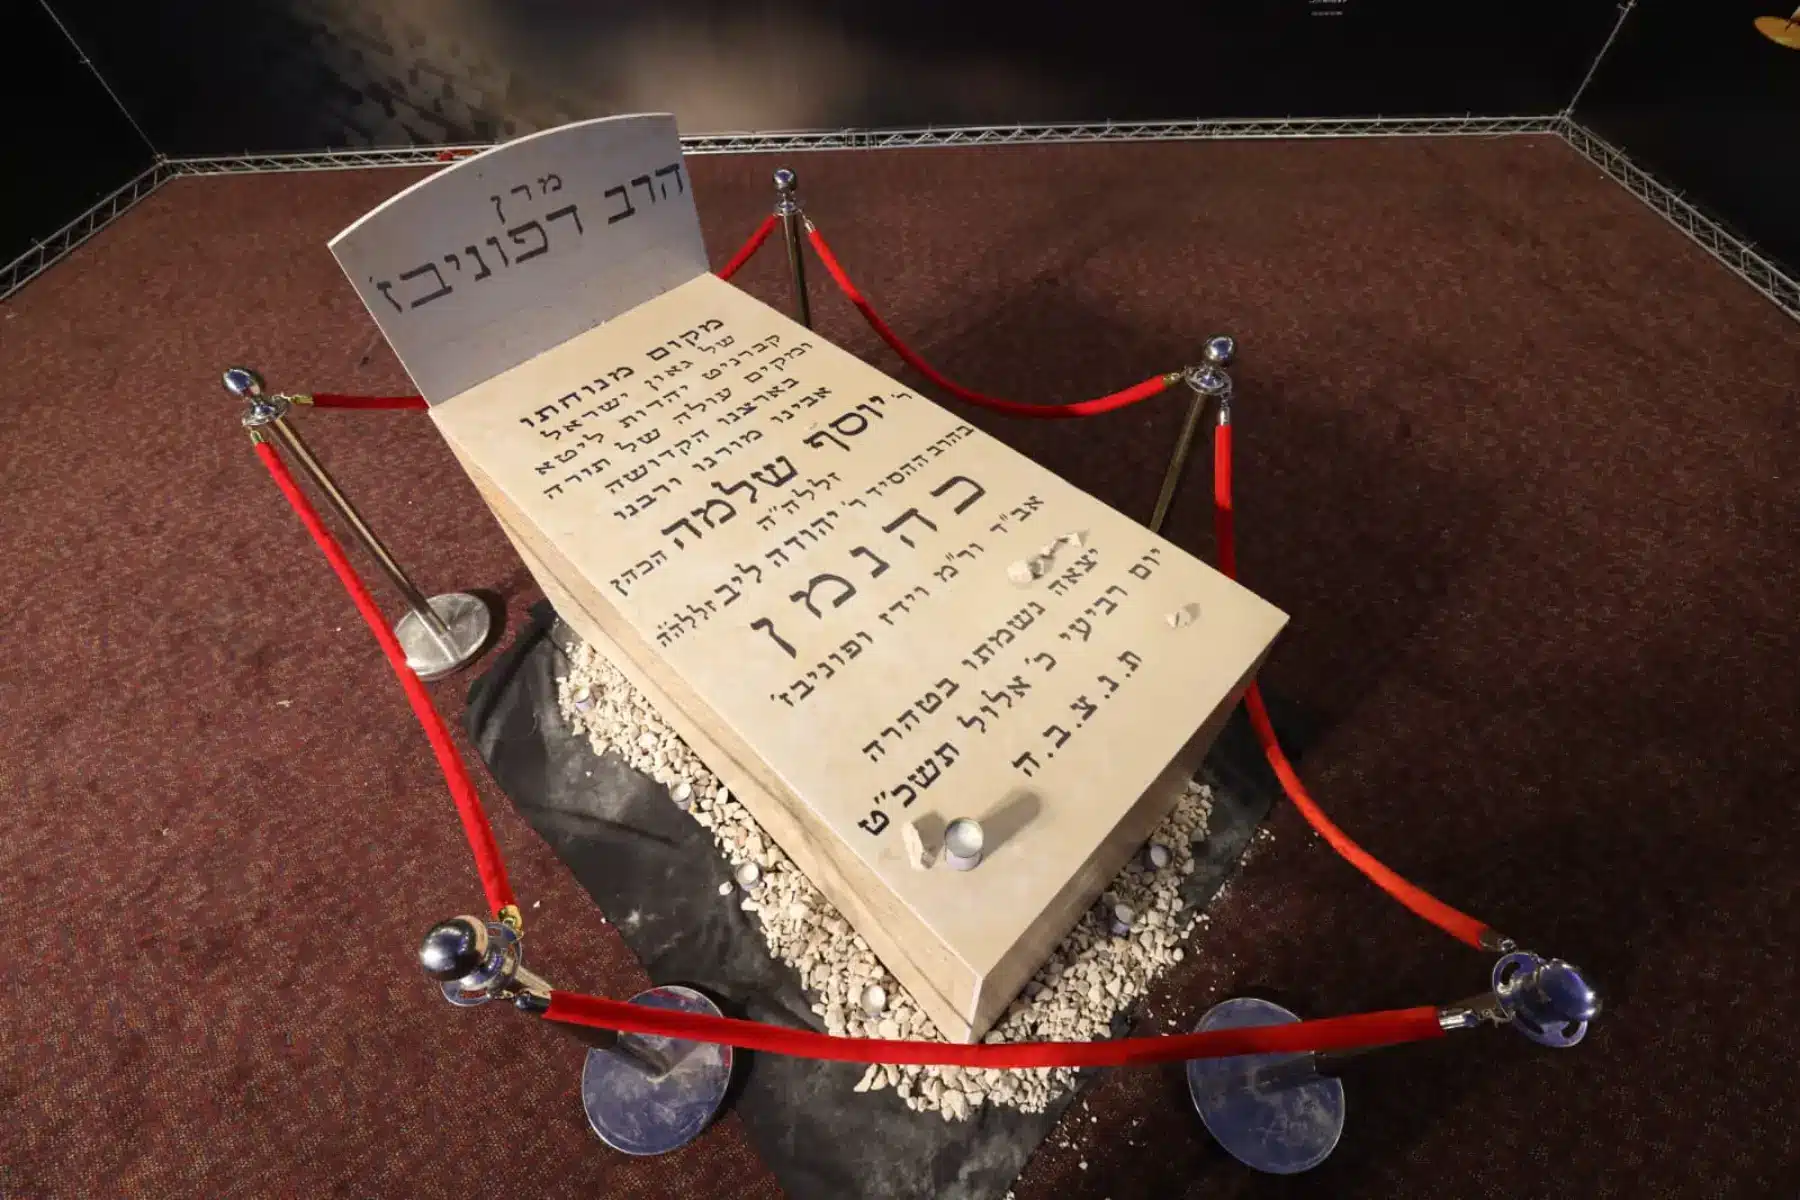 מרן
הרב דפוניבז'
מקום מנוחתו
של גאון ישראל
קברניט יהדות ליטא
ומקים עולה של תורה
בארצנו הקדושה
אבינו מורנו ורבנו
ר' יוסף שלמה הכהן
זללה"ה
בהרב החסיד ר' יהודה ליב זללה"ה
כהנמן
אב"ד ור"מ וידז ופוניבז'
יצאה נשמתו בטהרה
יום רביעי כ' אלול תשכ"ט
ת.נ.צ.ב.ה